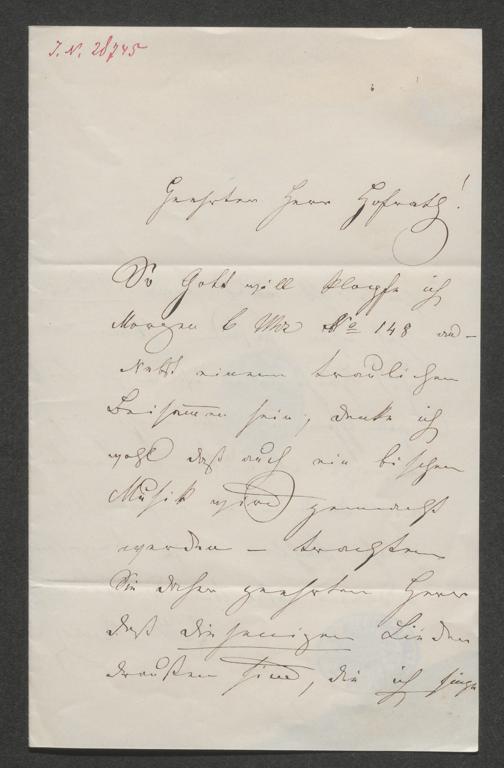 J. N. 28745
Geehrter Herr Hofrath!
So Gott will klopfe ich
Morgen 6 Uhr No 148 an –
Nebst einem traulichen
Beisammen sein, denke ich
wohl daß auch ein bischen
Musik wird gemacht
werden – trachten
Sie daher geehrter Herr
daß diejenigen Lieder
draußen sind, die ich singe